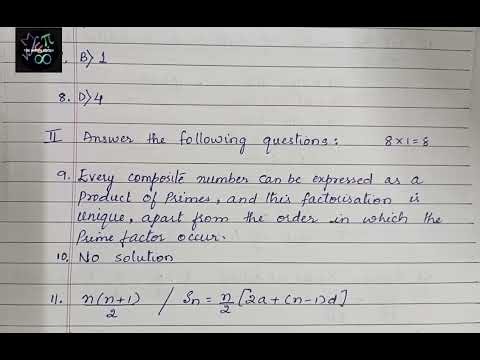 B) 1
8. D) 4
II Answer the following questions: 8×1=8
9. Every composite number can be expressed as a
Product of Primes, and this factorisation is
unique, apart from the order in which the
Prime factor occur.
10. No solution
11. n(n+1)/2 / Sn = n/2 [2a+(n-1)d]